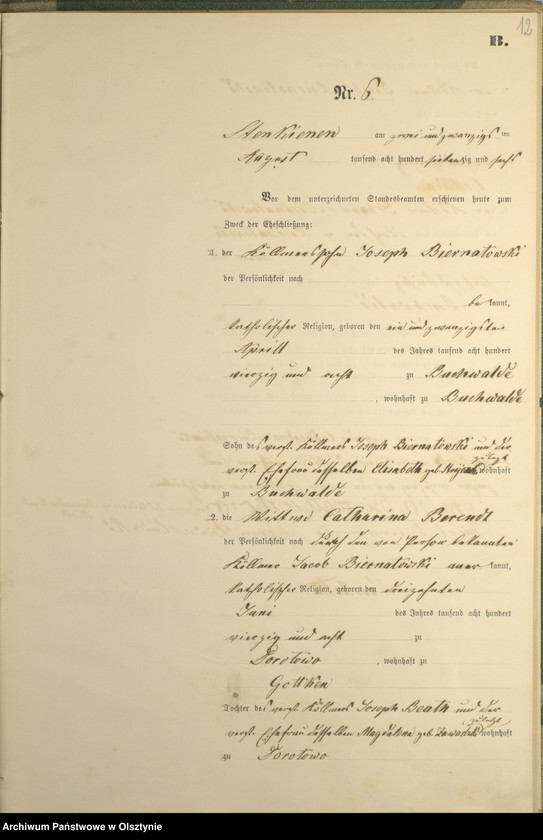 12
B.
Nr. 6.
Stenkienen am zwei und zwanzigs ten
August tausend acht hundert siebenzig und sechs
Vor dem unterzeichneten Standesbeamten erschienen heute zum
Zweck der Eheschließung:
1. der Köllmerssohn Joseph Biernatowski
der Persönlichkeit nach
be kannt,
katholischer Religion, geboren den ein und zwanzigsten
Aprill des Jahres tausend acht hundert
vierzig und acht zu Buchwalde
, wohnhaft zu Buchwalde
Sohn des verst. Köllmers Joseph Biernatowski und der
zuletzt
verst. Ehefrau desselben Elisabeth geb. wohnhaft
zu Buchwalde
2. die Wittwe Catharina Berendt
der Persönlichkeit nach durch den von Person bekannten
Köllmer Jacob Biernatowski aner kannt,
katholischer Religion, geboren den dreizehnten
Juni des Jahres tausend acht hundert
vierzig und acht zu
Dorotowo , wohnhaft zu
Gottken
Tochter des verst. Köllmers Joseph Beath und der
zuletzt
verst. Ehefrau desselben Magdalena geb. wohnhaft
zu Dorotowo
Archiwum Państwowe w Olsztynie